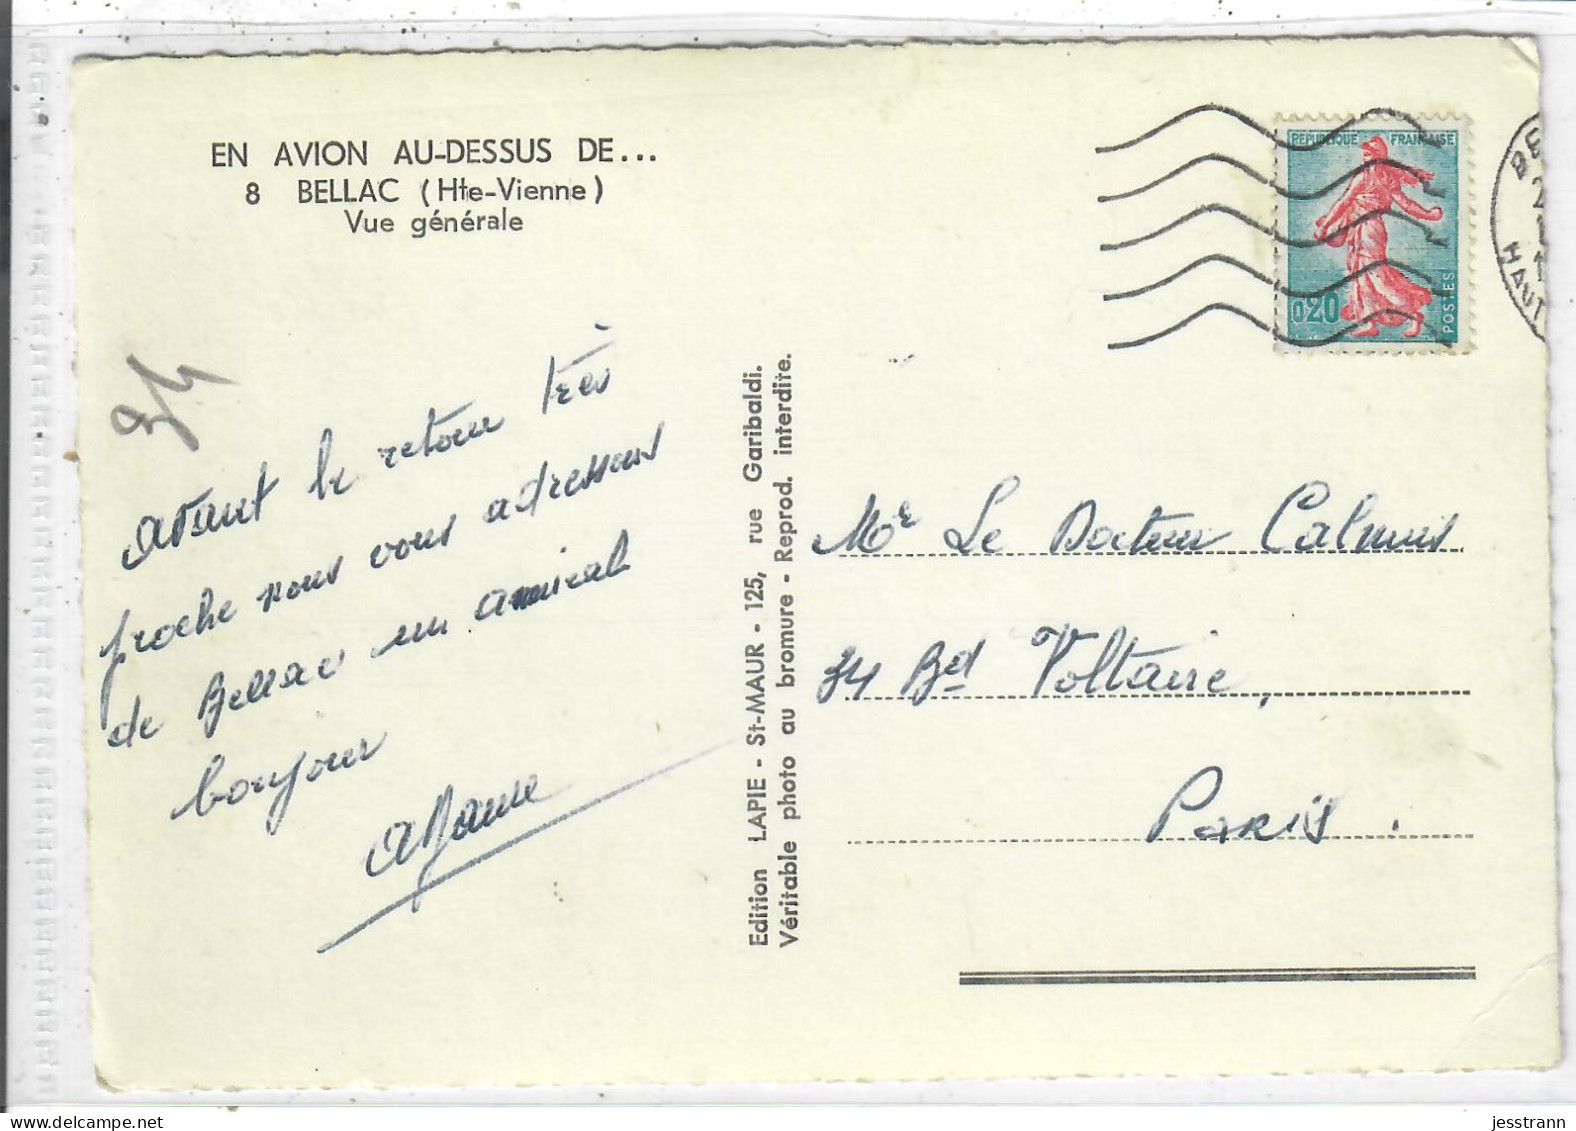 EN AVION AU-DESSUS DE...
8 BELLAC (Hte-Vienne)
Vue générale
avant le retour très
proche nous vous adressons
de Bellac un amical
bonjour
Edition LAPIE - St-MAUR - 125, rue Garibaldi.
Véritable photo au bromure - Reprod. interdite.
REPUBLIQUE FRANÇAISE
0,20
POSTES
BE
HAUT
Mr Le Docteur Calmus
34 Bd Voltaire,
Paris.
jesstrann